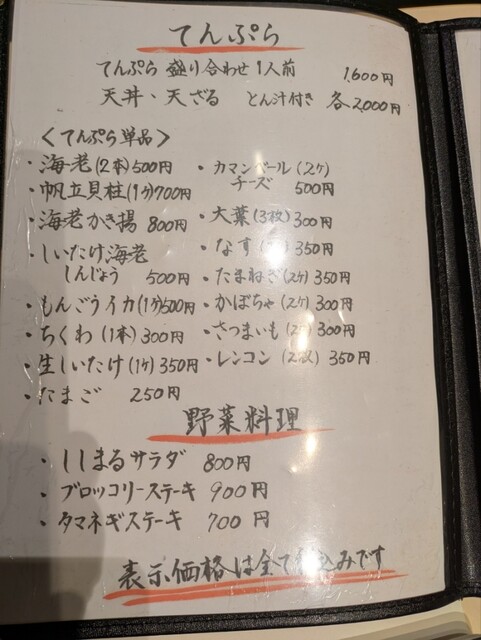 てんぷら
てんぷら 盛り合わせ 1人前 1,600円
天丼、天ざる とん汁付き 各2,000円
<てんぷら単品>
・海老(2本)500円
・帆立貝柱(1ヶ)700円
・海老かき揚 800円
・しいたけ海老
しんじょう 500円
・もんごうイカ(1ヶ)500円
・ちくわ(1本)300円
・生しいたけ(1ヶ)350円
・たまご 250円
・カマンベール(2ヶ)
チーズ 500円
・大葉(3枚)300円
・なす 350円
・たまねぎ(2ヶ)350円
・かぼちゃ(2ヶ)300円
・さつまいも 300円
・レンコン(2枚)350円
野菜料理
・ししまるサラダ 800円
・ブロッコリーステーキ 900円
・タマネギステーキ 700円
表示価格は全て込みです